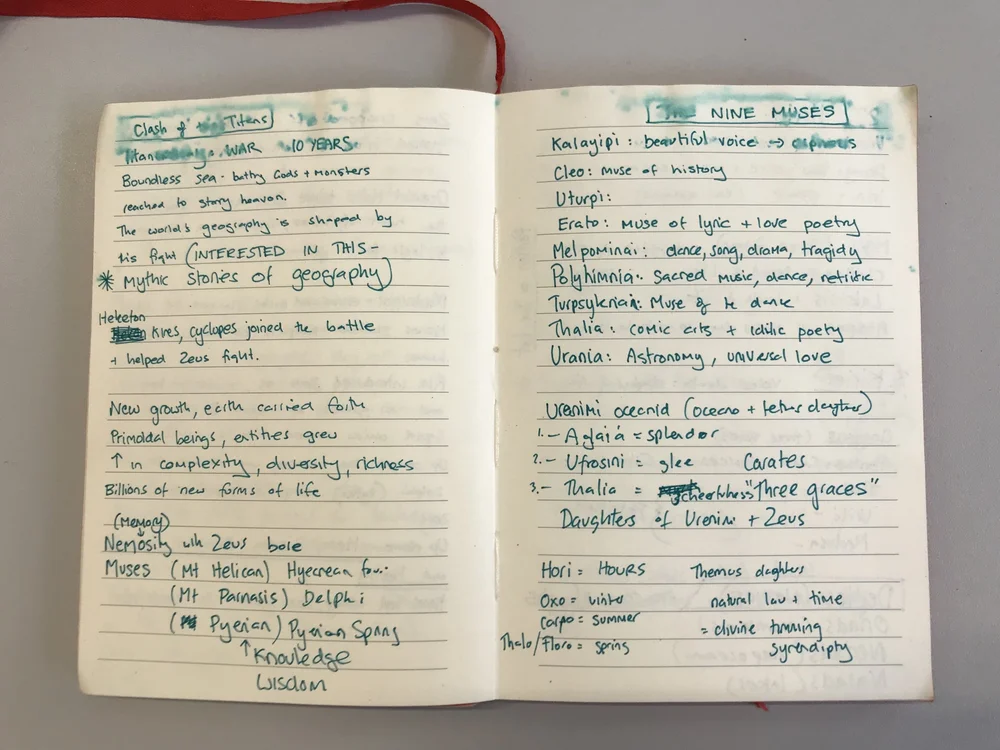 Clash of the Titans
Titan WAR 10 YEARS
Boundless sea. bathy Gods + Monsters
reached to starry heaven.
The world's geography is shaped by
his fight (INTERESTED IN THIS -
* Mythic Stories of geography)
Heketon
Kires, cyclopes joined the battle
+ helped Zeus fight.
New growth, earth carried forth
Primoldal beings, entities grew
↑ in complexity, diversity, richness
Billions of new forms of life
(Memory)
Nemosity with Zeus bore
Muses (Mt Helican) Hyecrean
(Mt Parnasis) Delphi
(Pyerian) Pyerian Spring
↑ Knowledge
Wisdom
The NINE MUSES
Kalayipi: beautiful voice →
Cleo: Muse of history
Uturpi:
Erato: Muse of lyric + love poetry
Melpominai: dance, song, drama, tragidy
Polyhimnia: Sacred music, dance,
Turpsykrian: Muse of the dance
Thalia: comic arts + idilic poetry
Urania: Astronomy, universal love
Urenimi oceanid (oceano + tethus daughter)
1.- Aglaiá = splendor
2.- Ufrosini = glee Carates
3.- Thalia = cheerfulness "Three graces"
Daughters of Urenimi + Zeus
Hori = HOURS Themus daghters
Oxo = winter natural law + time
Carpo = summer = divine timming
Thalo/Floro = spring syrendipty